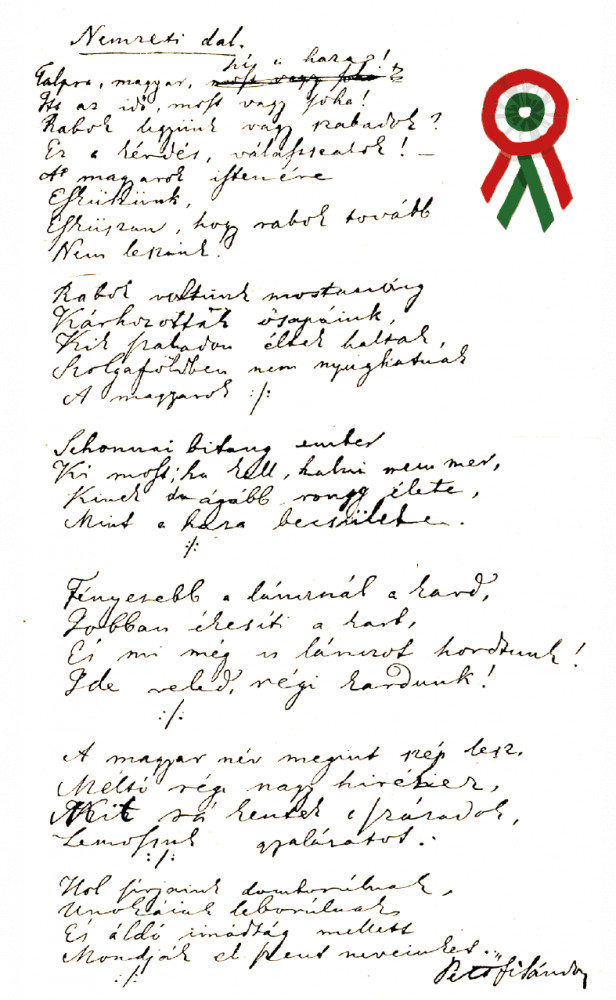 Nemzeti dal.
hí a haza!
Talpra, magyar, most vagy soha
Itt az idő, most vagy soha!
Rabok legyünk vagy szabadok?
Ez a kérdés, válasszatok! –
A magyarok istenére
Esküszünk,
Esküszünk, hogy rabok tovább
Nem leszünk!
Rabok voltunk mostanáig
Kárhozottak ősapáink,
Kik szabadon éltek haltak,
Szolgaföldben nem nyughatnak
A magyarok :/:
Sehonnai bitang ember
Ki most, ha kell, halni nem mer,
Kinek drágább rongy élete,
Mint a haza becsülete.
:/:
Fényesebb a láncznál a kard,
Jobban ékesíti a kart,
És mi még is lánczot hordtunk!
Ide veled, régi kardunk!
:/:
A magyar név megint szép lesz,
Méltó régi nagy hiréhez,
Mit rá kentek a századok,
Lemossuk gyalázatot.
:/:
Hol sírjaink domborúlnak,
Unokáink leborúlnak
És áldó imádság mellett
Mondják el szent neveinket.
:/:
Petőfi Sándor